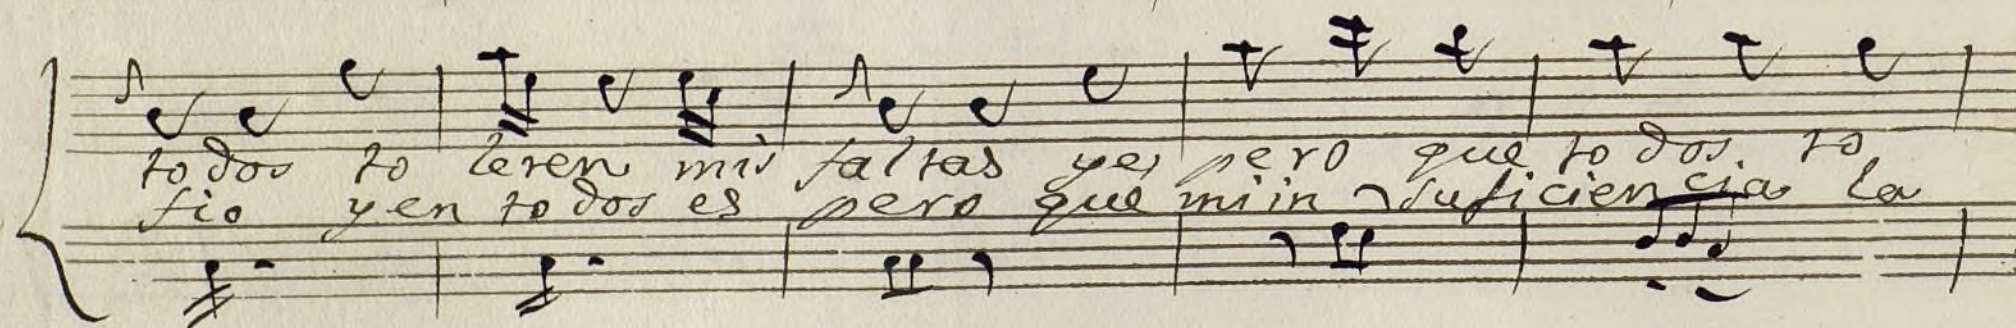 todos to leren mis faltas yes pero que todos. to
fio yen todos es pero que miin suficiencia la